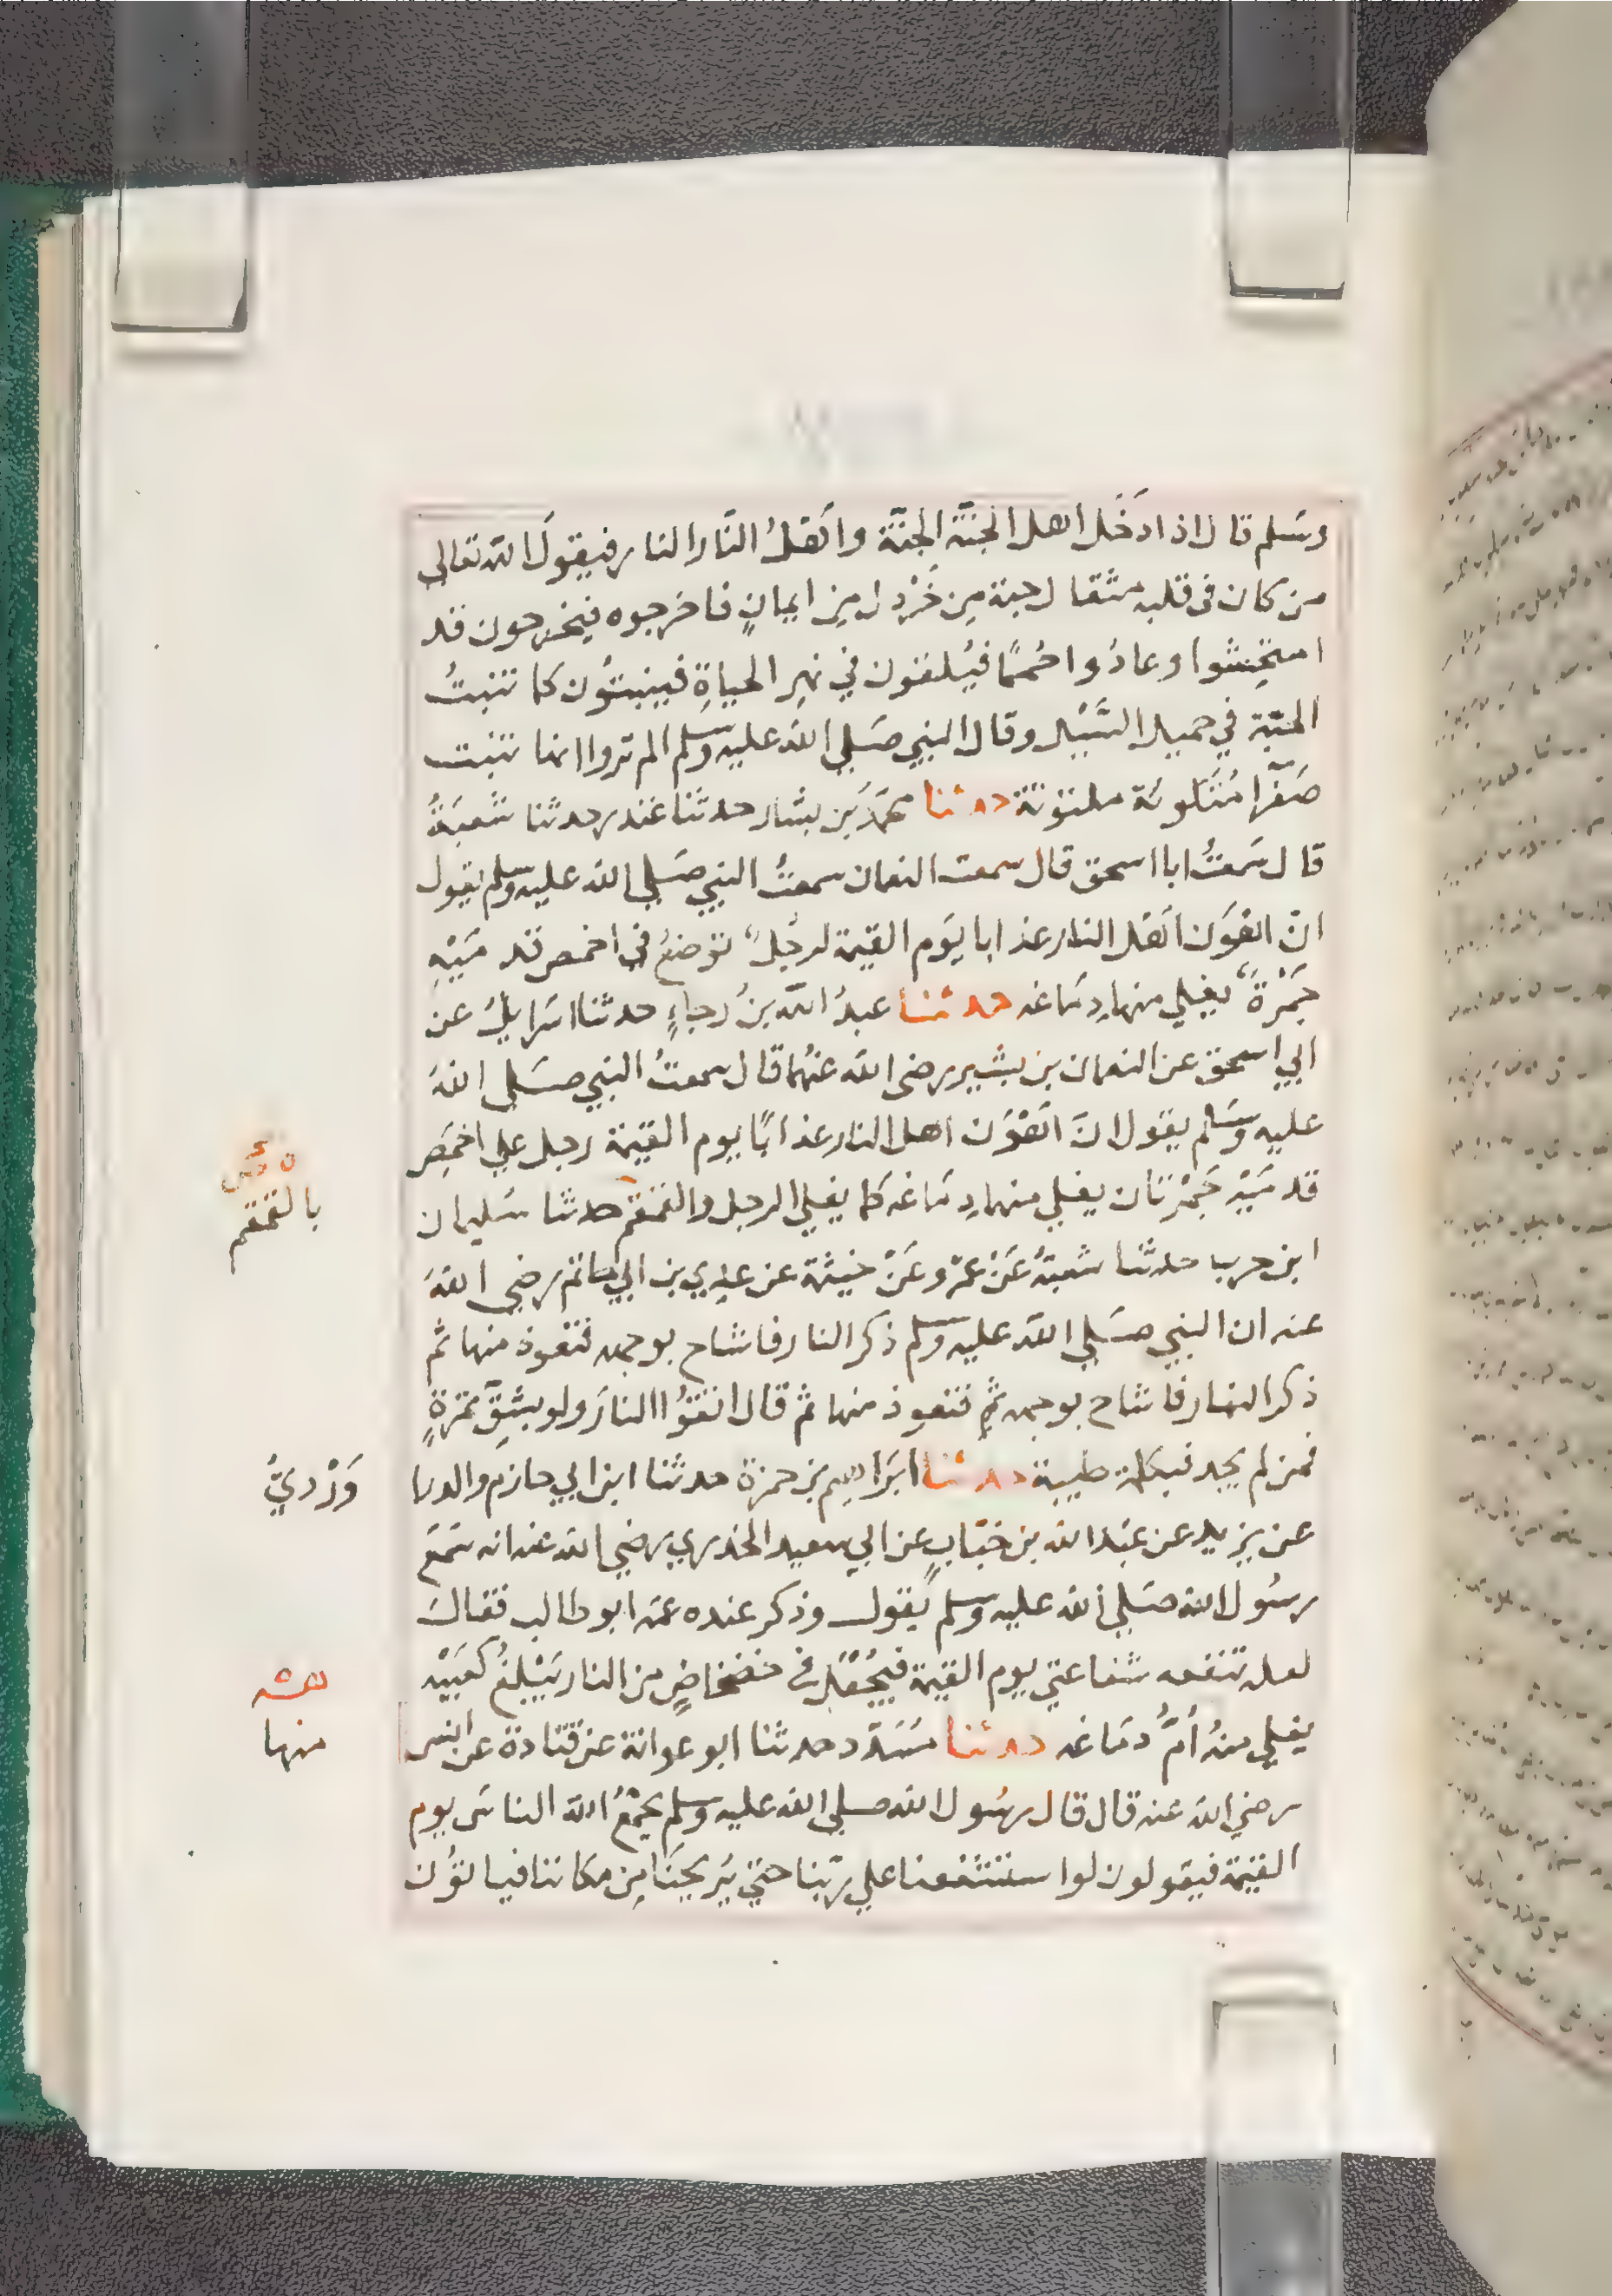 وسَلم قال اذا دَخَل اهل الجنَّة الجنَّة واَهلُ النَّار النار فيقولَ الله تعالى
من كان فى قلبه مثقال حبة مِن خَرْدل مِن ايمانٍ فاخرجوه فيخرجون قد
امتحِشوا وعادُوا حُممًا فيُلقون في نهرِ الحياةِ فينبتُون كما تنبتُ
الحبّة في حميل السَّيْل وقال النبي صَلي الله عليه وسلم الم تروا انها تنبت
صَفرآ مُلتَوية ملتوية حدثنا محمَّد بَن بشار حدثنا غندر حدثنا شعبَةُ
قال سَمعتُ ابا اسحق قال سمعت النعمان سمعتُ النبي صَلي الله عليه وسلم يقول
انّ اهْوَن اَهْل النار عذابا يَوم القيمة لرجُلٌ توضعُ في اخمص قدمَيْهِ
جَمْرةٌ يغلي منها دِمَاغه حدثنا عبدُ الله بنُ رجاءٍ حدثنا اسَرايلُ عن
ابي اسحق عن النعمان بن بشير رضى الله عنهُما قال سمعتُ النبي صَلى اللهَ
عليه وسَلم يقول انَّ اَهْوَن اهل النار عذابًا يوم القيمة رجل علي اخمَصِ
قدمَيْهِ جَمْرتان يغلي منها دِمَاغه كما يغلي المرجل والقمقم حدثنا سَليمان
ابن حرب حدثنا شعبةُ عَنْ عمْرو عَنْ خيثمة عن عدِي بن ابي حاتم رضي اللهَ
عنه ان النبي صَلي الله عليه وسلم ذكر النار فاشاح بوجهه فتعوذ منها ثم
ذكر النار فاشاح بوجهه ثم فتعوذ منها ثم قال اتقُوا النارَ ولو بشِقِّ تمرَةٍ
فمن لم يجد فبكلمة طيبة حدثنا ابَراهِيم بن حمزة حدثنا ابن ابي حازم والدرا
وَرْديُّ
عن يزيد عن عَبْد الله بن خبّابٍ عن ابي سعيد الخدري رضي الله عنه انه سَمَع
رسُول الله صَلي الله عليه وسلم يَقول وذكر عنده عمّه ابو طالب فقال
لعله تنفعه شفاعتي يوم القيمة فيُجْعَل فى ضحضاحٍ من النار يَبْلغُ كعبَيْه
يغلي منهُ اُمُّ دمَاغه حدثنا مسَدّد حدثنا ابو عوانة عن قتادة عن انس
رضي الله عنه قال قال رسُول الله صلي الله عليه وسلم يجمعُ الله الناسَ يوم
القيمة فيقولون لو استشفعنا علي ربّنا حتي يُريحنَا مِن مكاننا فياتوُن
بالقمقم
منها